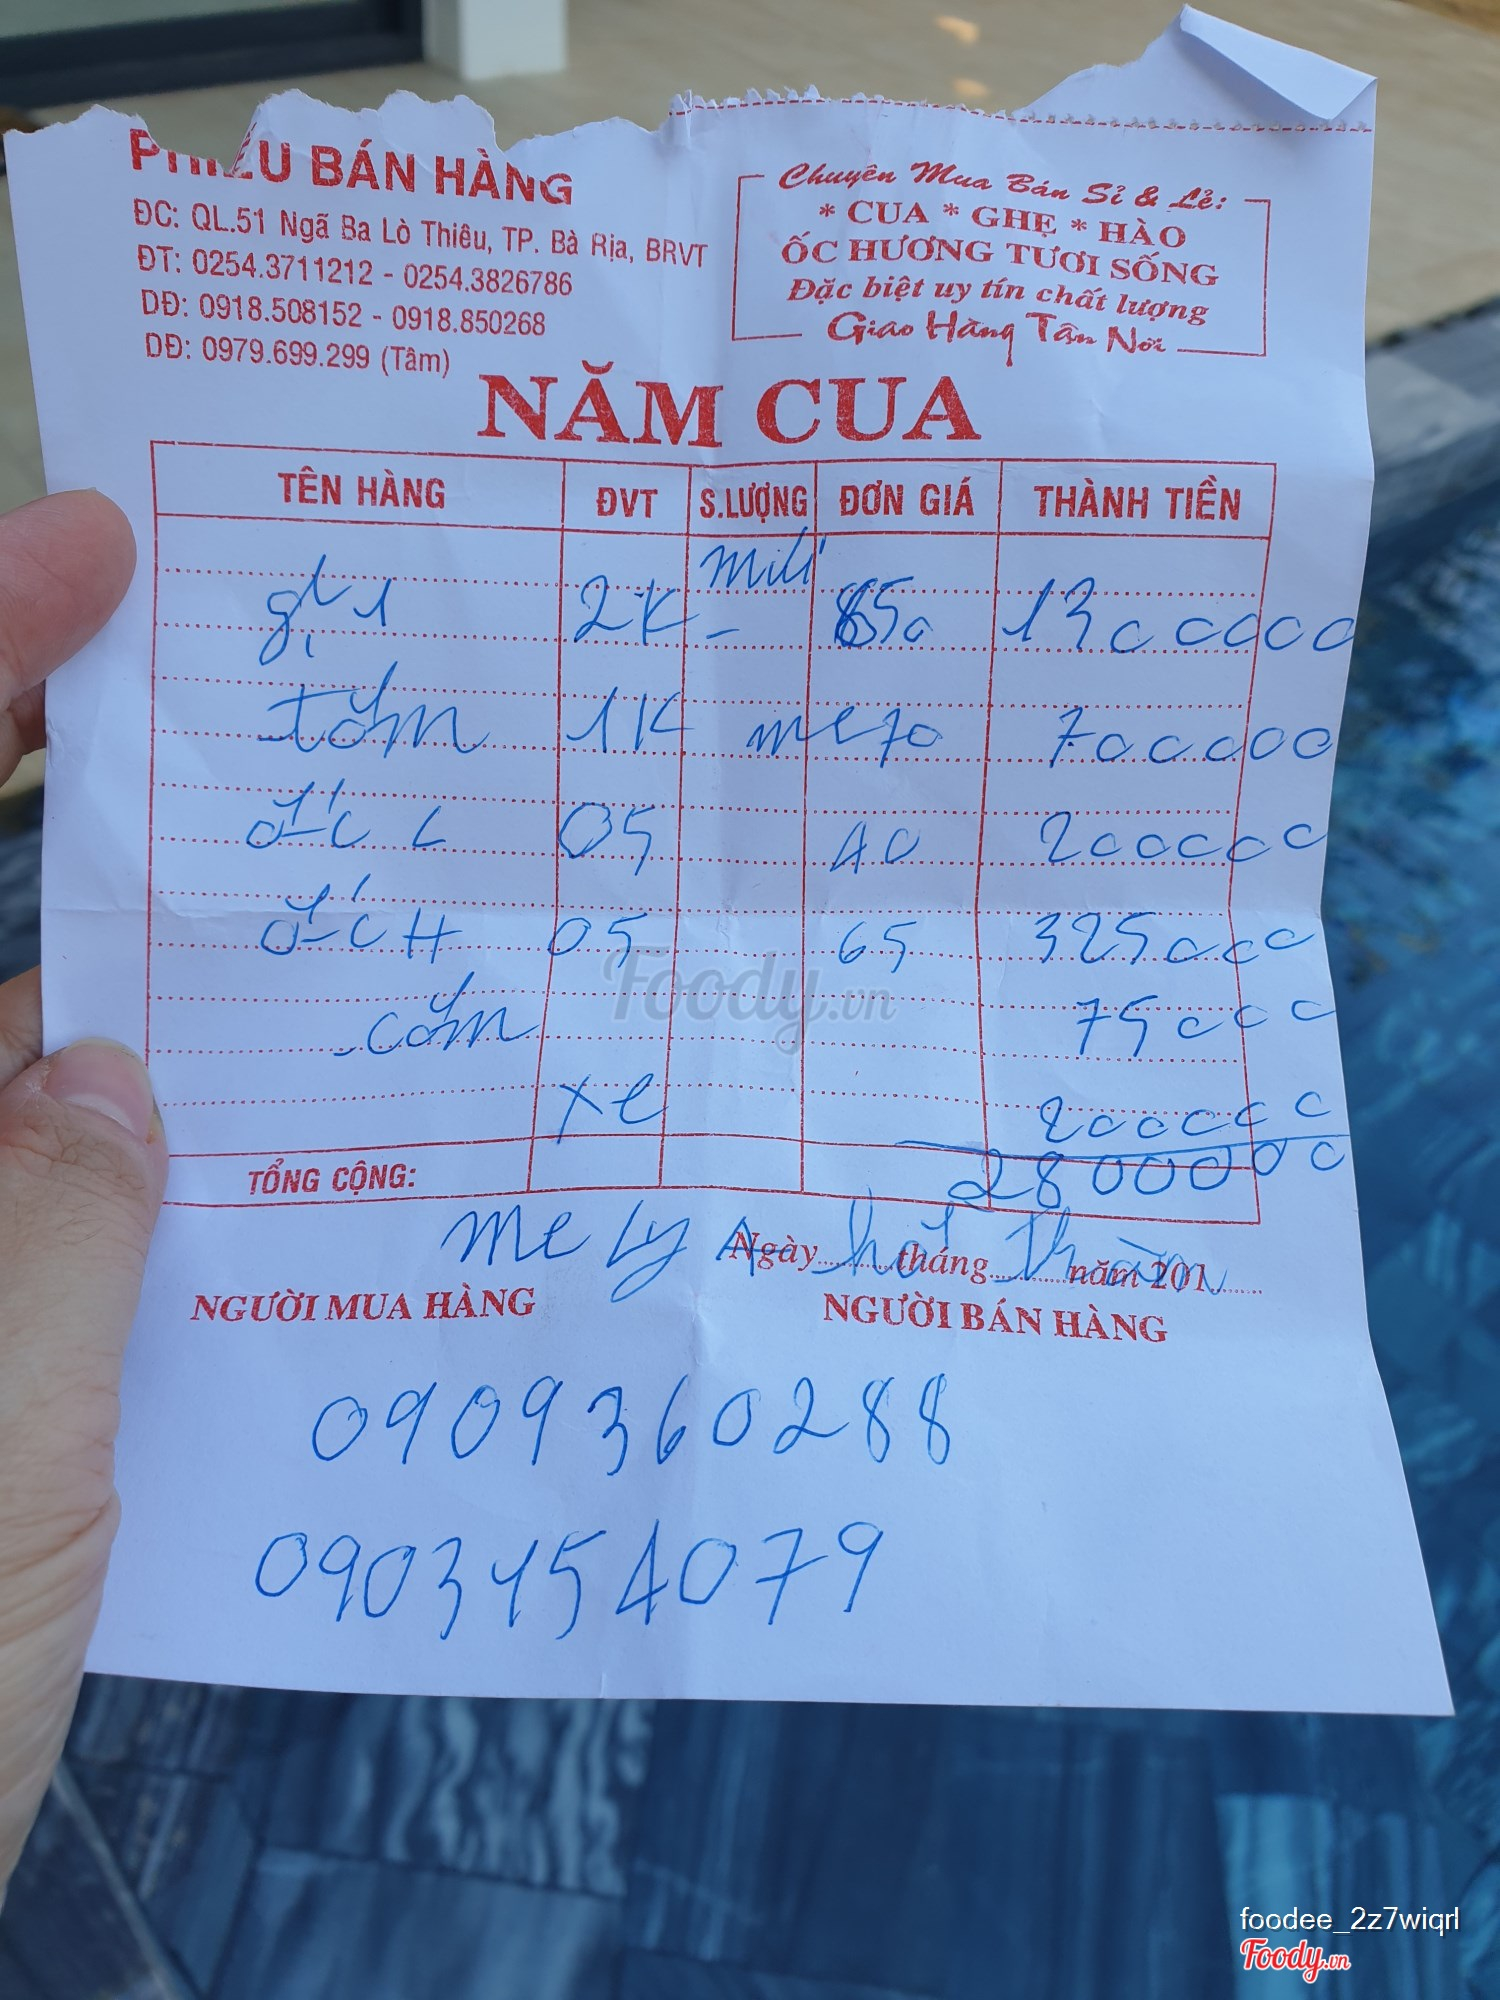 PHIẾU BÁN HÀNG
ĐC: QL.51 Ngã Ba Lò Thiêu, TP. Bà Rịa, BRVT
ĐT: 0254.3711212 - 0254.3826786
DĐ: 0918.508152 - 0918.850268
DĐ: 0979.699.299 (Tâm)
Chuyên Mua Bán Sỉ & Lẻ:
* CUA * GHẸ * HÀO
ỐC HƯƠNG TƯƠI SỐNG
Đặc biệt uy tín chất lượng
Giao Hàng Tận Nơi
NĂM CUA
TÊN HÀNG ĐVT S.LƯỢNG ĐƠN GIÁ THÀNH TIỀN
2K 1300000
tôm 1K me 70 700000
ốc L 05 40 200000
ốc H 05 65 325000
cơm 75000
xe 200000
TỔNG CỘNG: 2800000
me ly
Ngày tháng năm 201
NGƯỜI MUA HÀNG NGƯỜI BÁN HÀNG
0909360288
0903454079
Foody.vn
foodee_2z7wiqrl
Foody.vn